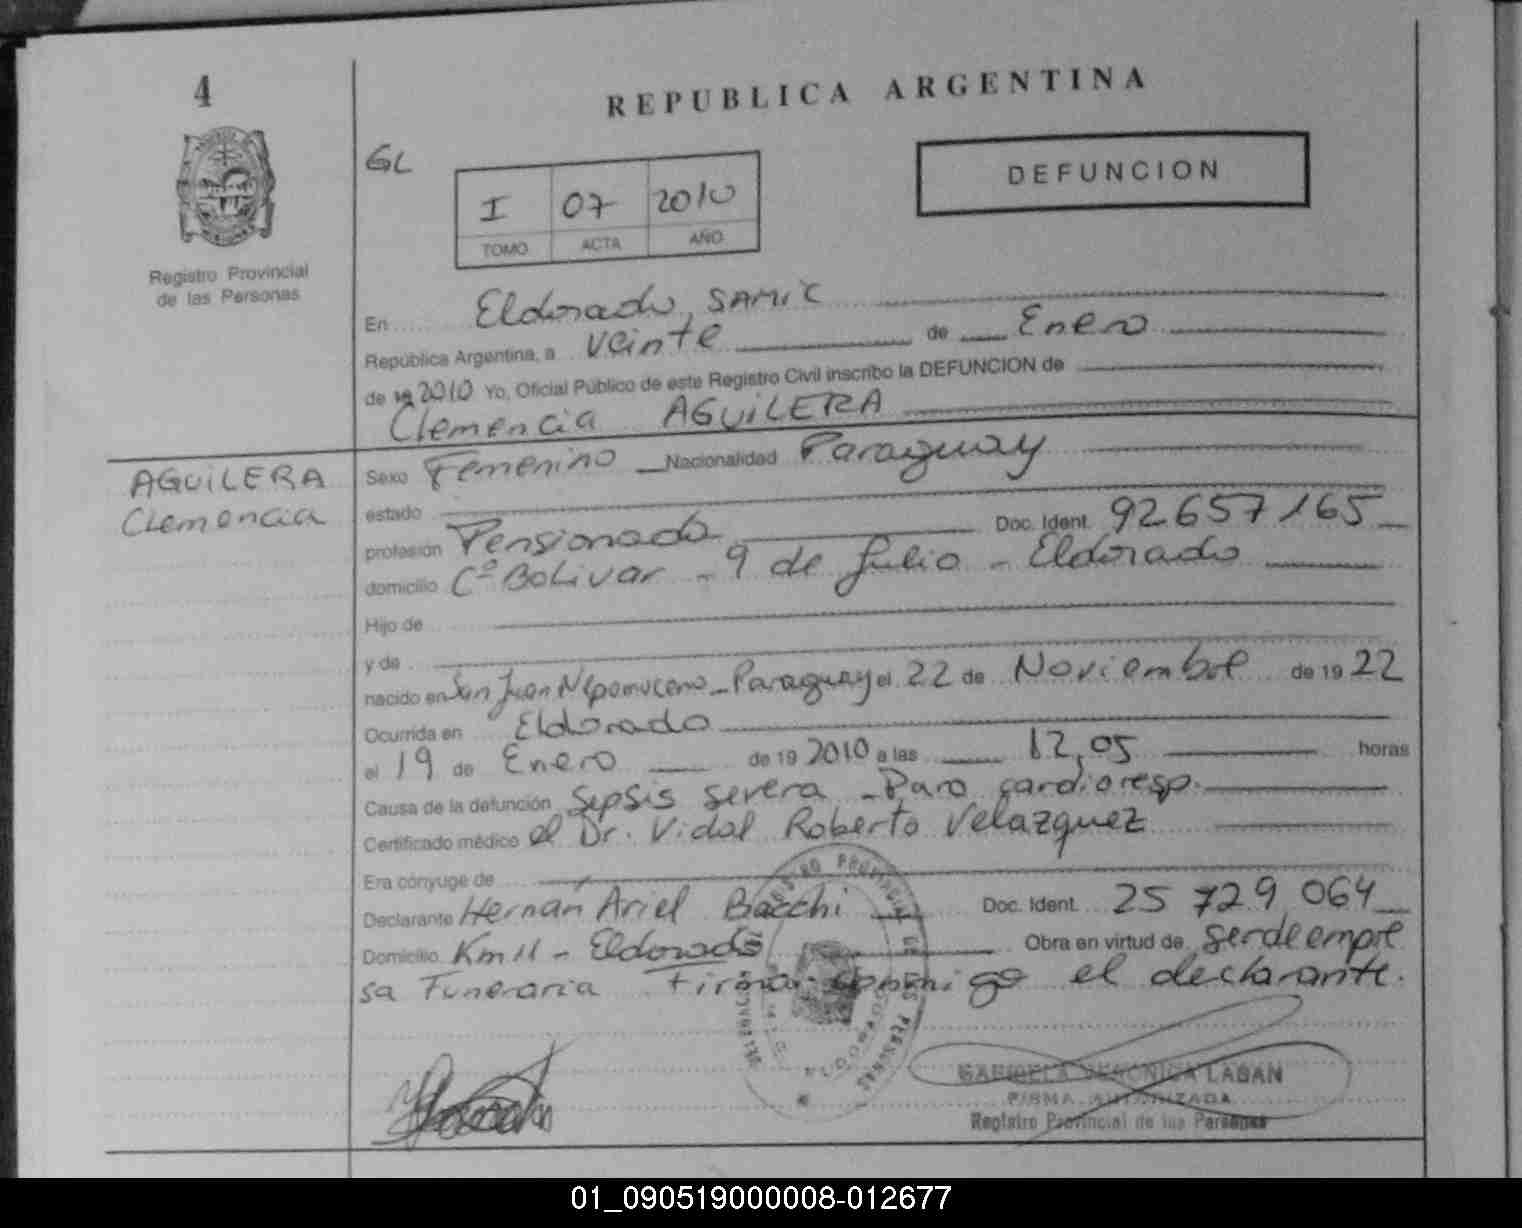 4
REPUBLICA ARGENTINA
GL
DEFUNCION
I 07 2010
TOMO ACTA AÑO
Registro Provincial
de las Personas
En Eldorado, SAMIC
República Argentina, a veinte de Enero
de 19 2010 Yo, Oficial Público de este Registro Civil inscribo la DEFUNCION de
Clemencia AGUILERA
AGUILERA
Clemencia
Sexo Femenino Nacionalidad Paraguay
estado
profesión Pensionada Doc. Ident. 92657165
domicilio Cº Bolivar - 9 de Julio - Eldorado
Hijo de
y de
nacido en San Juan Nepomuceno - Paraguay el 22 de Noviembre de 19 22
Ocurrida en Eldorado
el 19 de Enero de 19 2010 a las 12,05 horas
Causa de la defunción Sepsis severa - Paro cardioresp.
Certificado médico el Dr. Vidal Roberto Velazquez
Era cónyuge de
Declarante Hernán Ariel Bacchi Doc. Ident. 25 729 064
Domicilio Km 11 - Eldorado Obra en virtud de ser de empre
sa Funeraria Firma conmigo el declarante.
GABRIELA VERONICA LABAN
FIRMA AUTORIZADA
Registro Provincial de las Personas
01_090519000008-012677